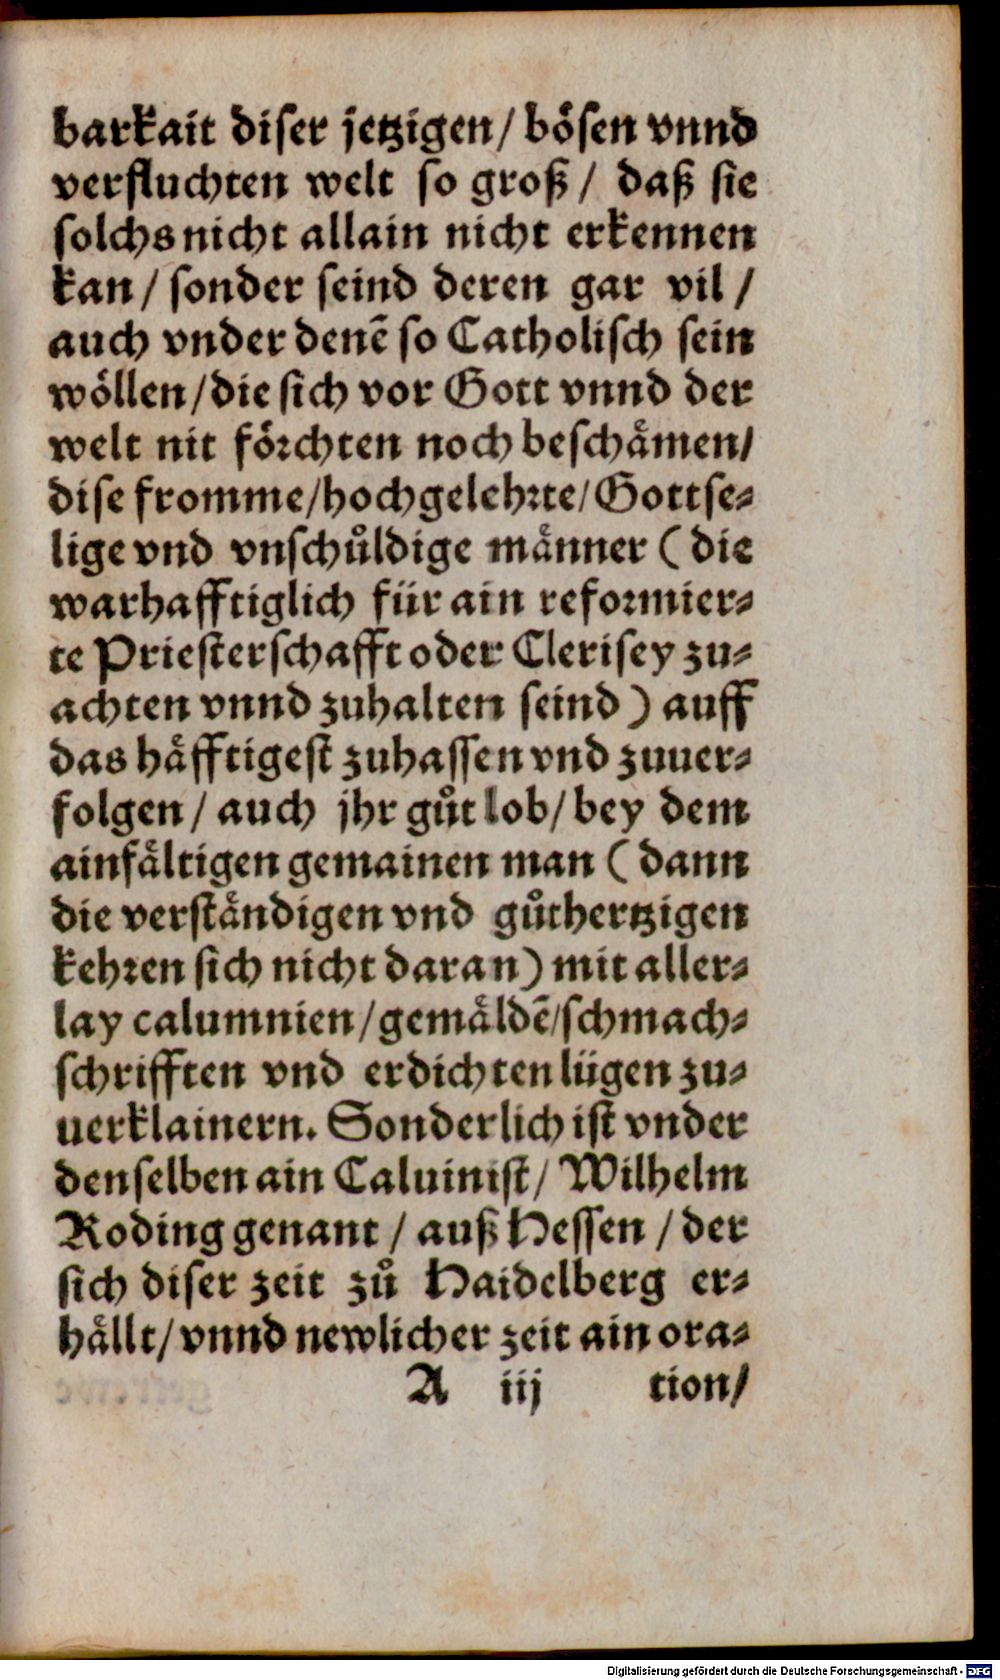 barkait diser jetzigen/ bösen vnnd
verfluchten welt so groß/ daß sie
solchs nicht allain nicht erkennen
kan/ sonder seind deren gar vil/
auch vnder denē so Catholisch sein
wöllen/die sich vor Gott vnnd der
welt nit förchten noch beschämen/
dise fromme/hochgelehrte/Gottse-
lige vnd vnschůldige männer (die
warhafftiglich für ain reformier-
te Priesterschafft oder Clerisey zu-
achten vnnd zuhalten seind) auff
das häfftigest zuhassen vnd zuuer-
folgen/ auch jhr gůt lob/ bey dem
ainfältigen gemainen man (dann
die verständigen vnd gůthertzigen
kehren sich nicht daran) mit aller-
lay calumnien/gemäldē/schmach-
schrifften vnd erdichten lügen zu-
uerklainern. Sonderlich ist vnder
denselben ain Caluinist/ Wilhelm
Roding genant/ auß Hessen/ der
sich diser zeit zů Haidelberg er-
hällt/ vnnd newlicher zeit ain ora-
A iij tion/
Digitalisierung gefördert durch die Deutsche Forschungsgemeinschaft - DFG